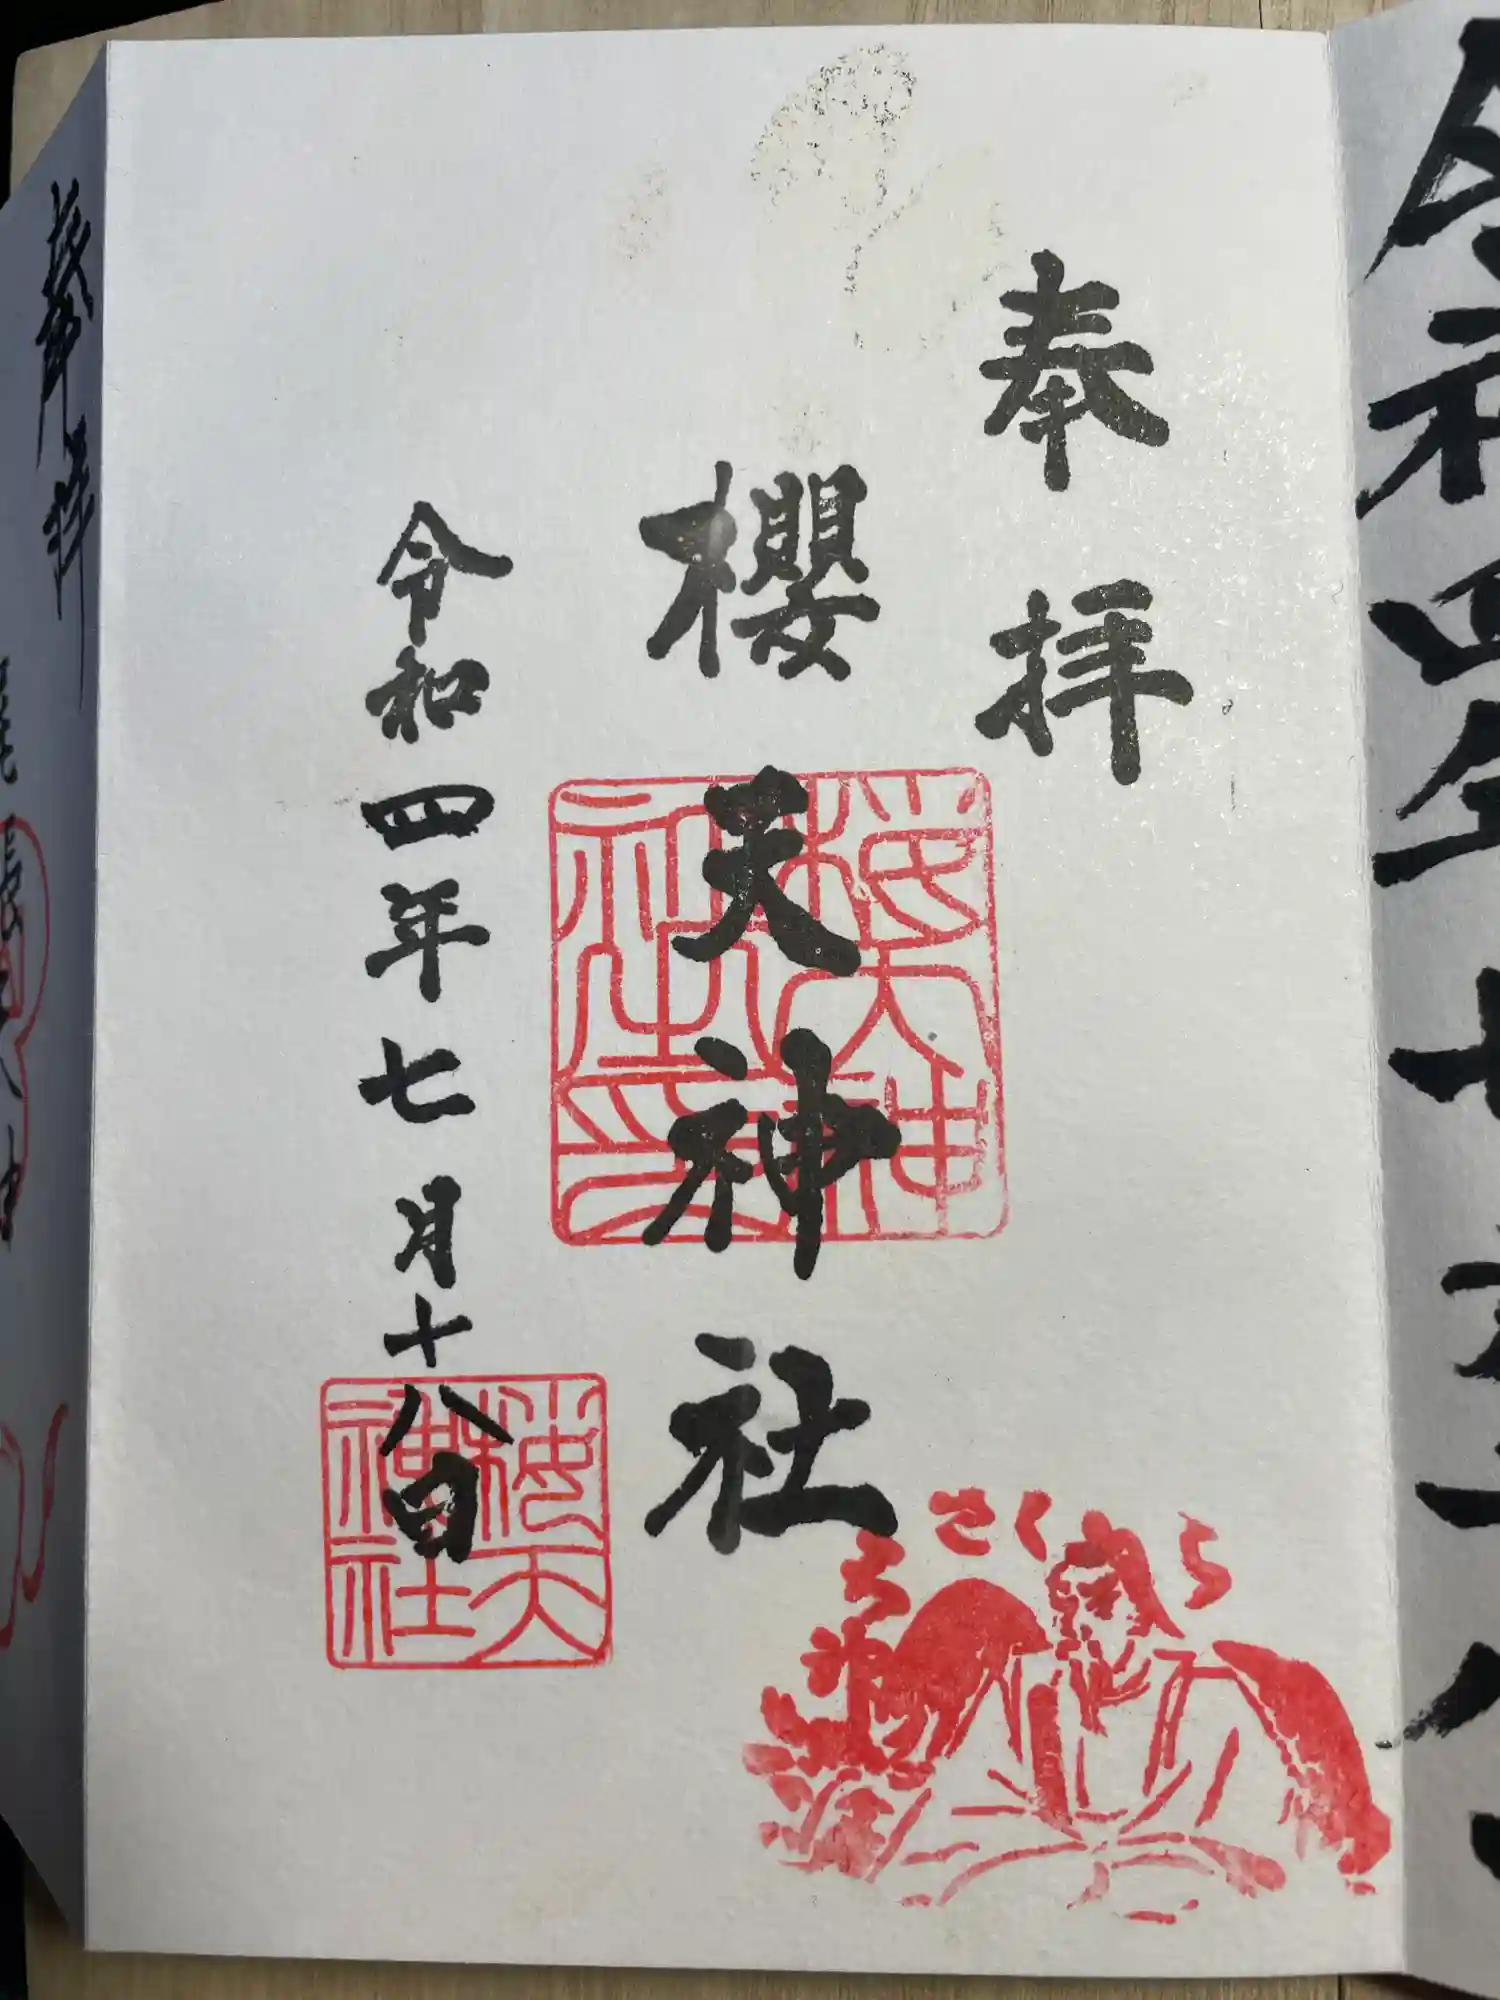 奉拝
櫻天神社
令和四年七月十八日
櫻天神社印
櫻天神社
さくら
奉拝
令和四年七月